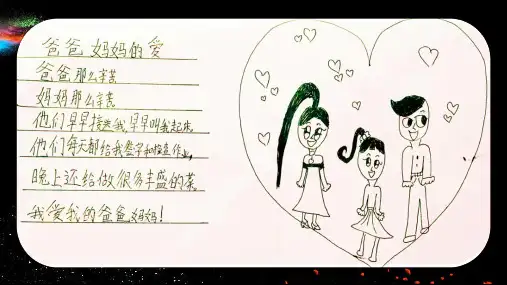 爸爸妈妈的爱
爸爸那么辛苦
妈妈那么辛苦
他们早早接送我早早叫我起床
他们每天都给我签字和检查作业,
晚上还给做很多丰盛的菜
我爱我的爸爸妈妈!